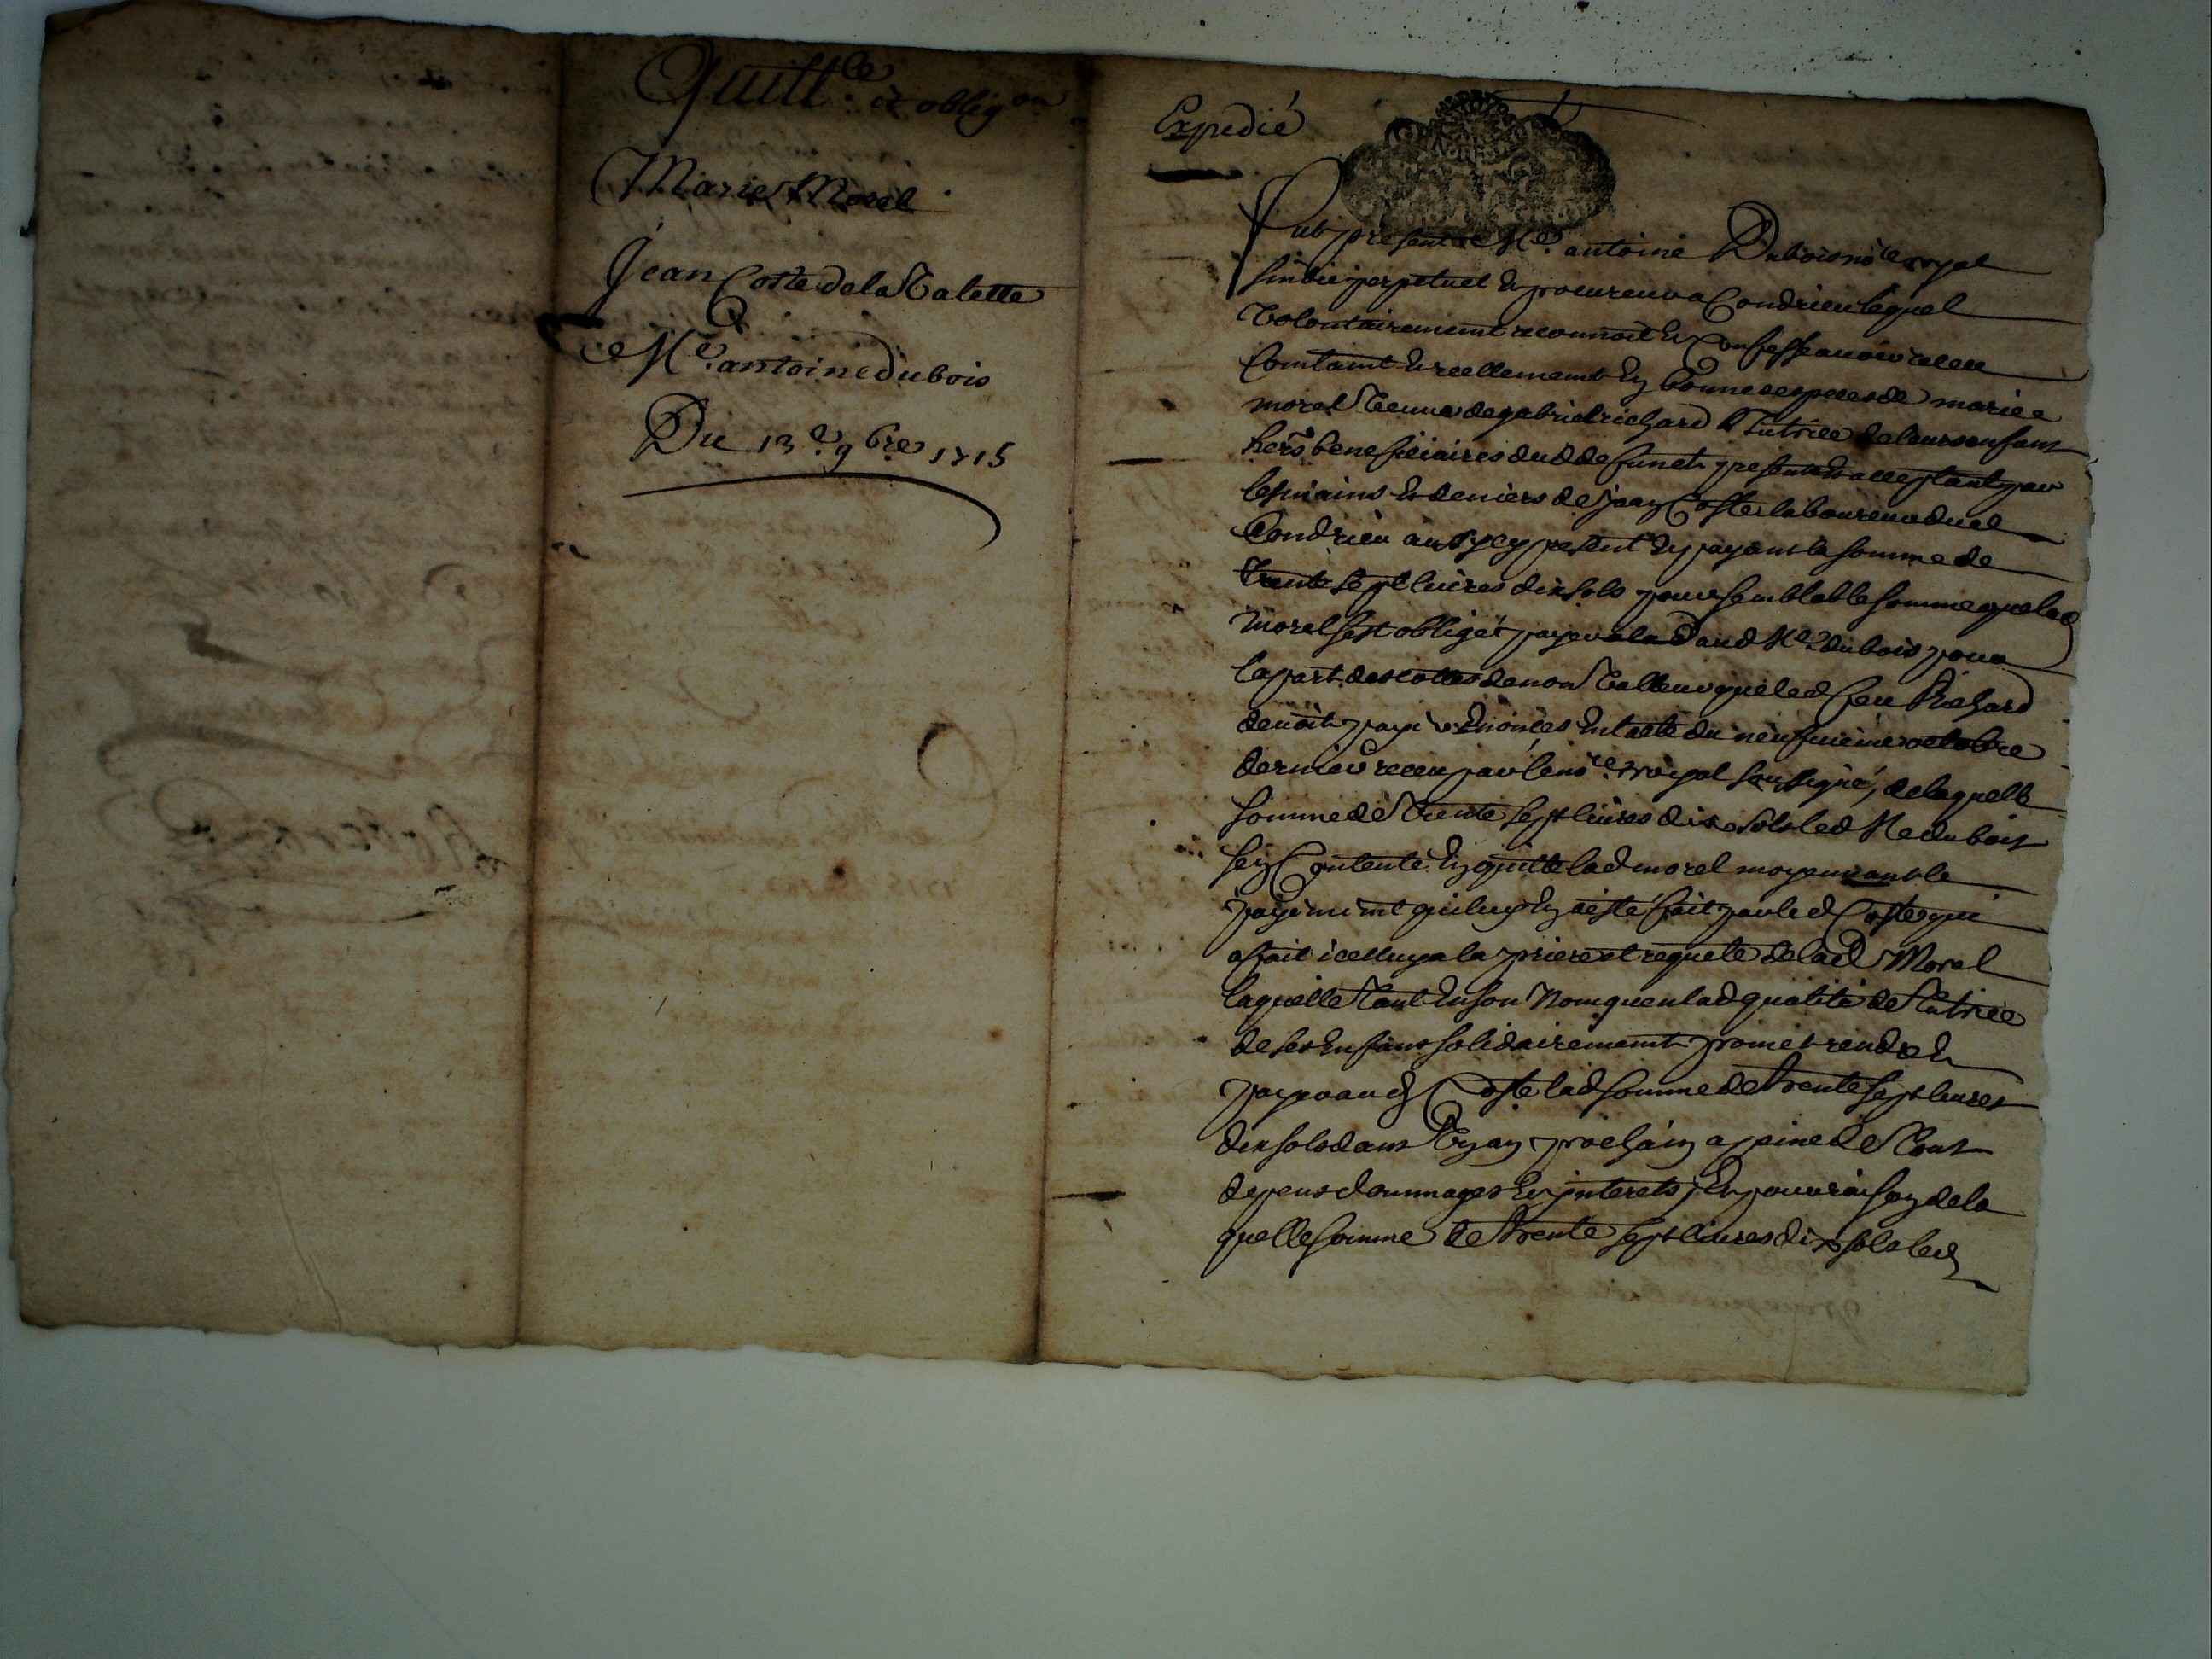 Quitt.ce et oblig.on
Marie Morel
Jean Coste de la Valette
Me. antoine dubois
Du 13e. 9bre 1715
Expedié
Fut present Me. antoine Dubois no.re royal
sindic perpetuel & procureur a Condrieu lequel
volontairement reconnoit & Confesse avoir receu
Comtamt & reellement en bonne especes de marie
morel veuve de gabriel richard & Tutrice de leurs enfans
hers beneficiaires dud defunct presente & acceptant par
les mains & deniers de jean Coste laboureur dud
Condrieu aussy present & payant la somme de
trente sept livres dix sols pour semblable somme que lad
morel s'est obligée payer aud Me. dubois pour
la part des cottes de non valleur que led feu Richard
devoit payer enoncés en l'acte du neufvieme octobre
dernier receu par le no.re royal soussigné, de laquelle
somme de trente sept livres dix sols led Me dubois
s'en Contente & quitte lad morel moyennant le
payement qui luy en a esté fait par led Coste qui
a fait icelluy a la priere et requete de lad Morel
laquelle tant en son Nom qu'en lad qualité de tutrice
de ses enfans solidairement promet rendre &
payer aud Coste lad somme de trente sept livres
dix sols dans un an prochain a peine de tous
depens dommages & interets, & pour raison de la
quelle somme de trente sept livres dix sols led